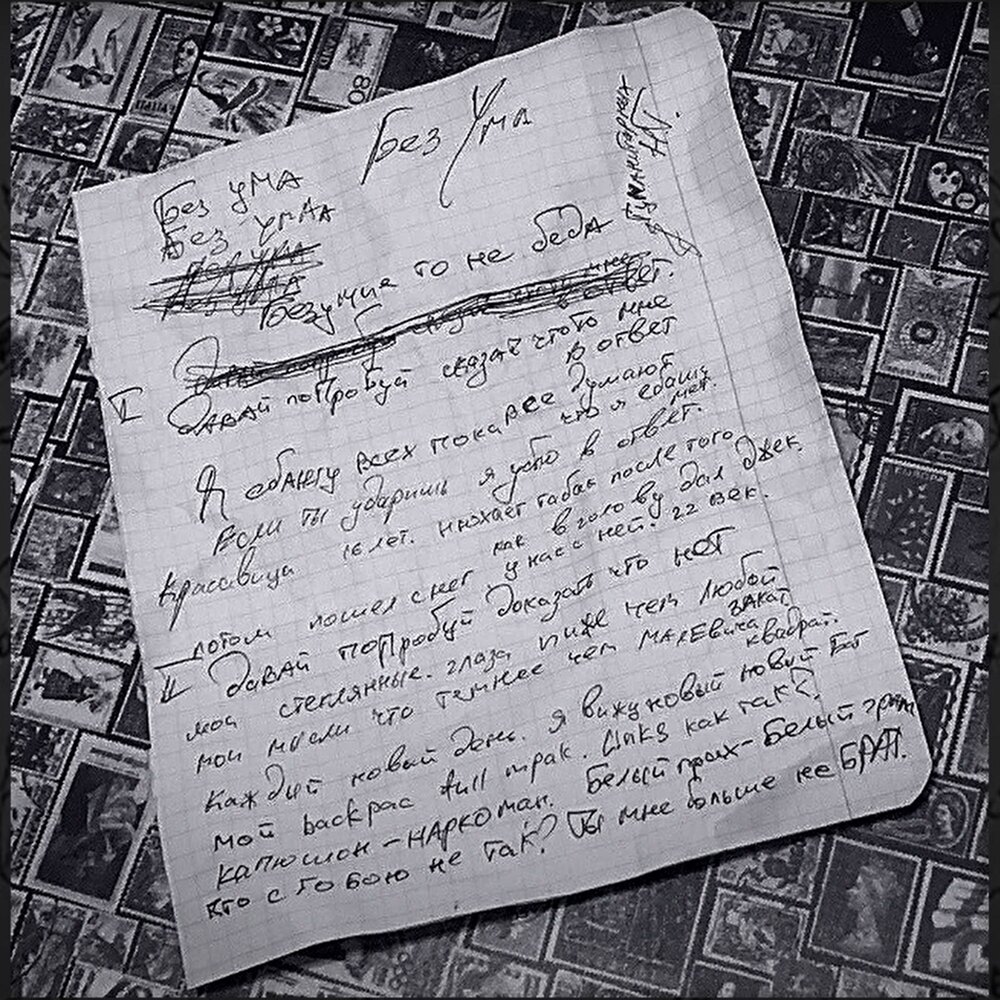 Без Ума
Без ума
Без умаа
Безумие то не беда
I Давай попробуй сказат чтото мне
в ответ
Я ебангу всех пока все думают
что я ебашу
мет.
Если ты ударишь я убю в ответ.
Красавица 16 лет. нюхает табак после того
как в голову дал джек.
потом пошел снег у нас с ней. 22 век.
II Давай попробуй доказать что нет
мои стеглянные. глаза ниже чем любой
закат
мои мысли что темнее чем малевича квадрат.
Каждый новый день. я вижу новый новый
мой backpac full трак. Links как так?
капюшон - наркоман. Белый прах - Белый грим
кто с тобою не так? Ты мне больше не БРАТ.
ITALIA
80